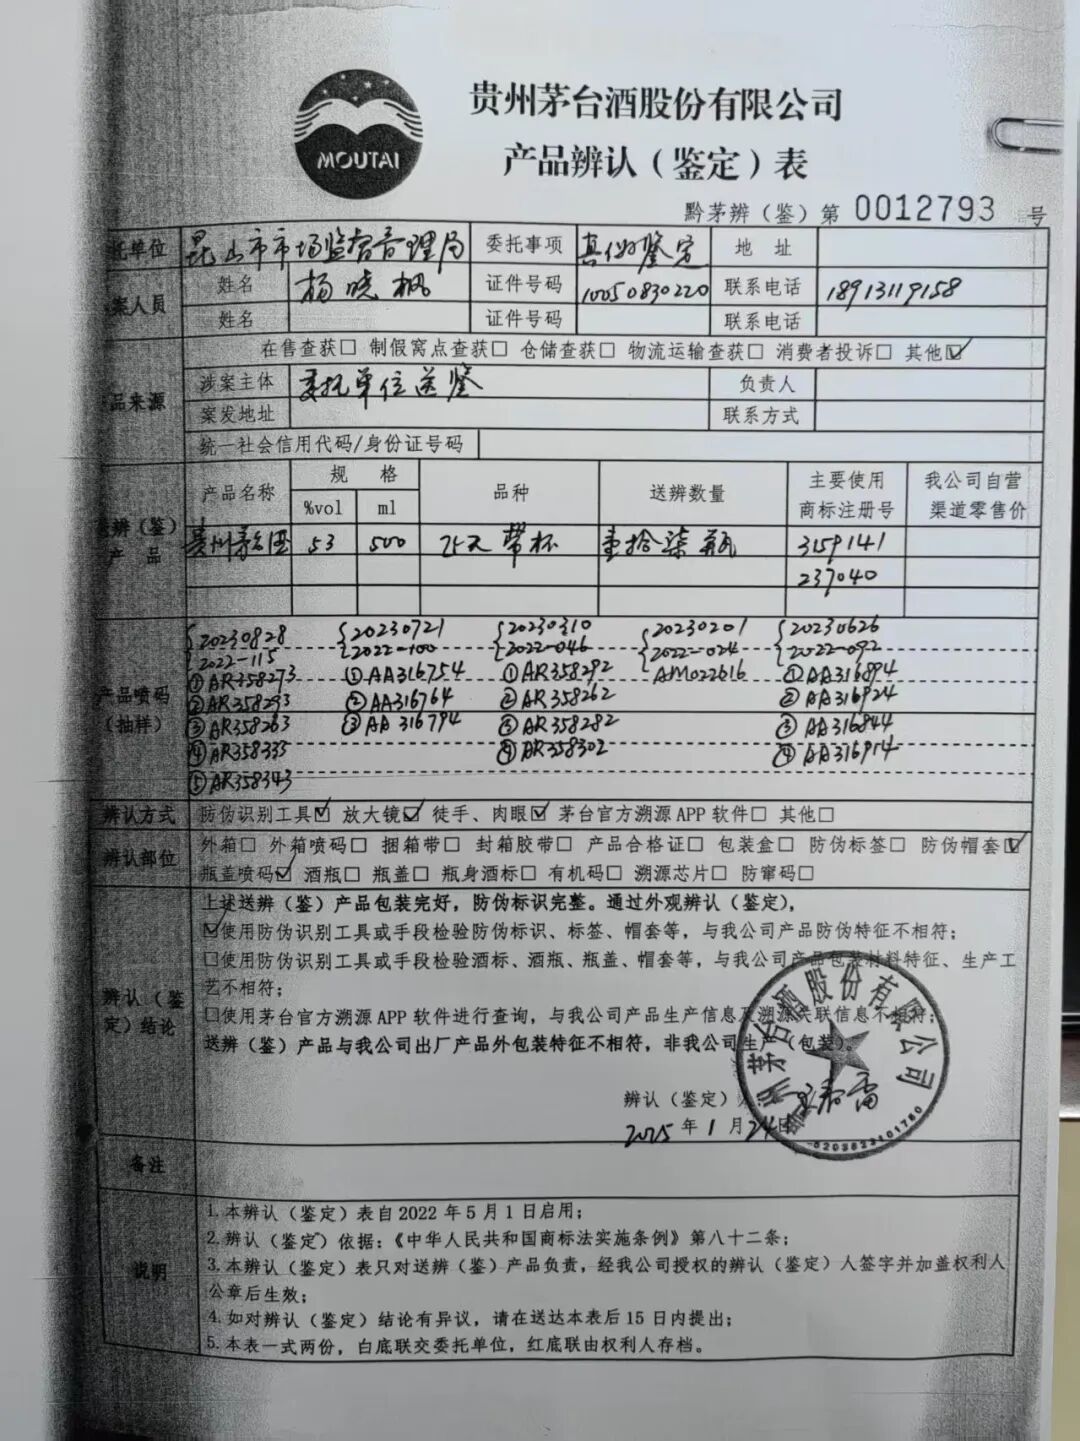 MOUTAI
贵州茅台酒股份有限公司
产品辨认（鉴定）表
黔茅辨（鉴）第 0012793 号
托单位 昆山市市场监督管理局 委托事项 真伪鉴定 地 址
案人员 姓名 杨晓枫 证件号码 10050830220 联系电话 18913119158
姓名 证件号码 联系电话
品来源 在售查获□ 制假窝点查获□ 仓储查获□ 物流运输查获□ 消费者投诉□ 其他☑
涉案主体 委托单位送鉴 负责人
案发地址 联系方式
统一社会信用代码/身份证号码
辨（鉴）产 品
产品名称 规 格 %vol ml 品种 送辨数量 主要使用商标注册号 我公司自营渠道零售价
贵州茅台酒 53 500 飞天 带杯 壹拾柒瓶 3159141
237040
产品喷码（抽样）
20230828 20230721 20230310 20230201 20230626
2022-115 2022-100 2022-046 2022-024 2022-092
①AR358273 ①AA316754 ①AR358292 AM022616 ①AA316894
②AR358293 ②AA316764 ②AR358262 ②AA316924
③AR358263 ③AA316794 ③AR358282 ③AA316844
④AR358333 ④AR358302 ④AA316914
⑤AR358343
辨认方式 防伪识别工具☑ 放大镜☑ 徒手、肉眼☑ 茅台官方溯源APP软件□ 其他□
辨认部位 外箱□ 外箱喷码□ 捆箱带□ 封箱胶带□ 产品合格证□ 包装盒□ 防伪标签□ 防伪帽套☑
瓶盖喷码☑ 酒瓶□ 瓶盖□ 瓶身酒标□ 有机码□ 溯源芯片□ 防窜码□
辨认（鉴定）结论
上述送辨（鉴）产品包装完好，防伪标识完整。通过外观辨认（鉴定），
☑使用防伪识别工具或手段检验防伪标识、标签、帽套等，与我公司产品防伪特征不相符；
□使用防伪识别工具或手段检验酒标、酒瓶、瓶盖、帽套等，与我公司产品包装材料特征、生产工
艺不相符；
□使用茅台官方溯源APP软件进行查询，与我公司产品生产信息及溯源关联信息不相符；
送辨（鉴）产品与我公司出厂产品外包装特征不相符，非我公司生产（包装）。
辨认（鉴定）
2025年1月24日
州茅台酒股份有限公司
5203823101780
备注
说明
1.本辨认（鉴定）表自2022年5月1日启用；
2.辨认（鉴定）依据：《中华人民共和国商标法实施条例》第八十二条；
3.本辨认（鉴定）表只对送辨（鉴）产品负责，经我公司授权的辨认（鉴定）人签字并加盖权利人
公章后生效；
4.如对辨认（鉴定）结论有异议，请在送达本表后15日内提出；
5.本表一式两份，白底联交委托单位，红底联由权利人存档。